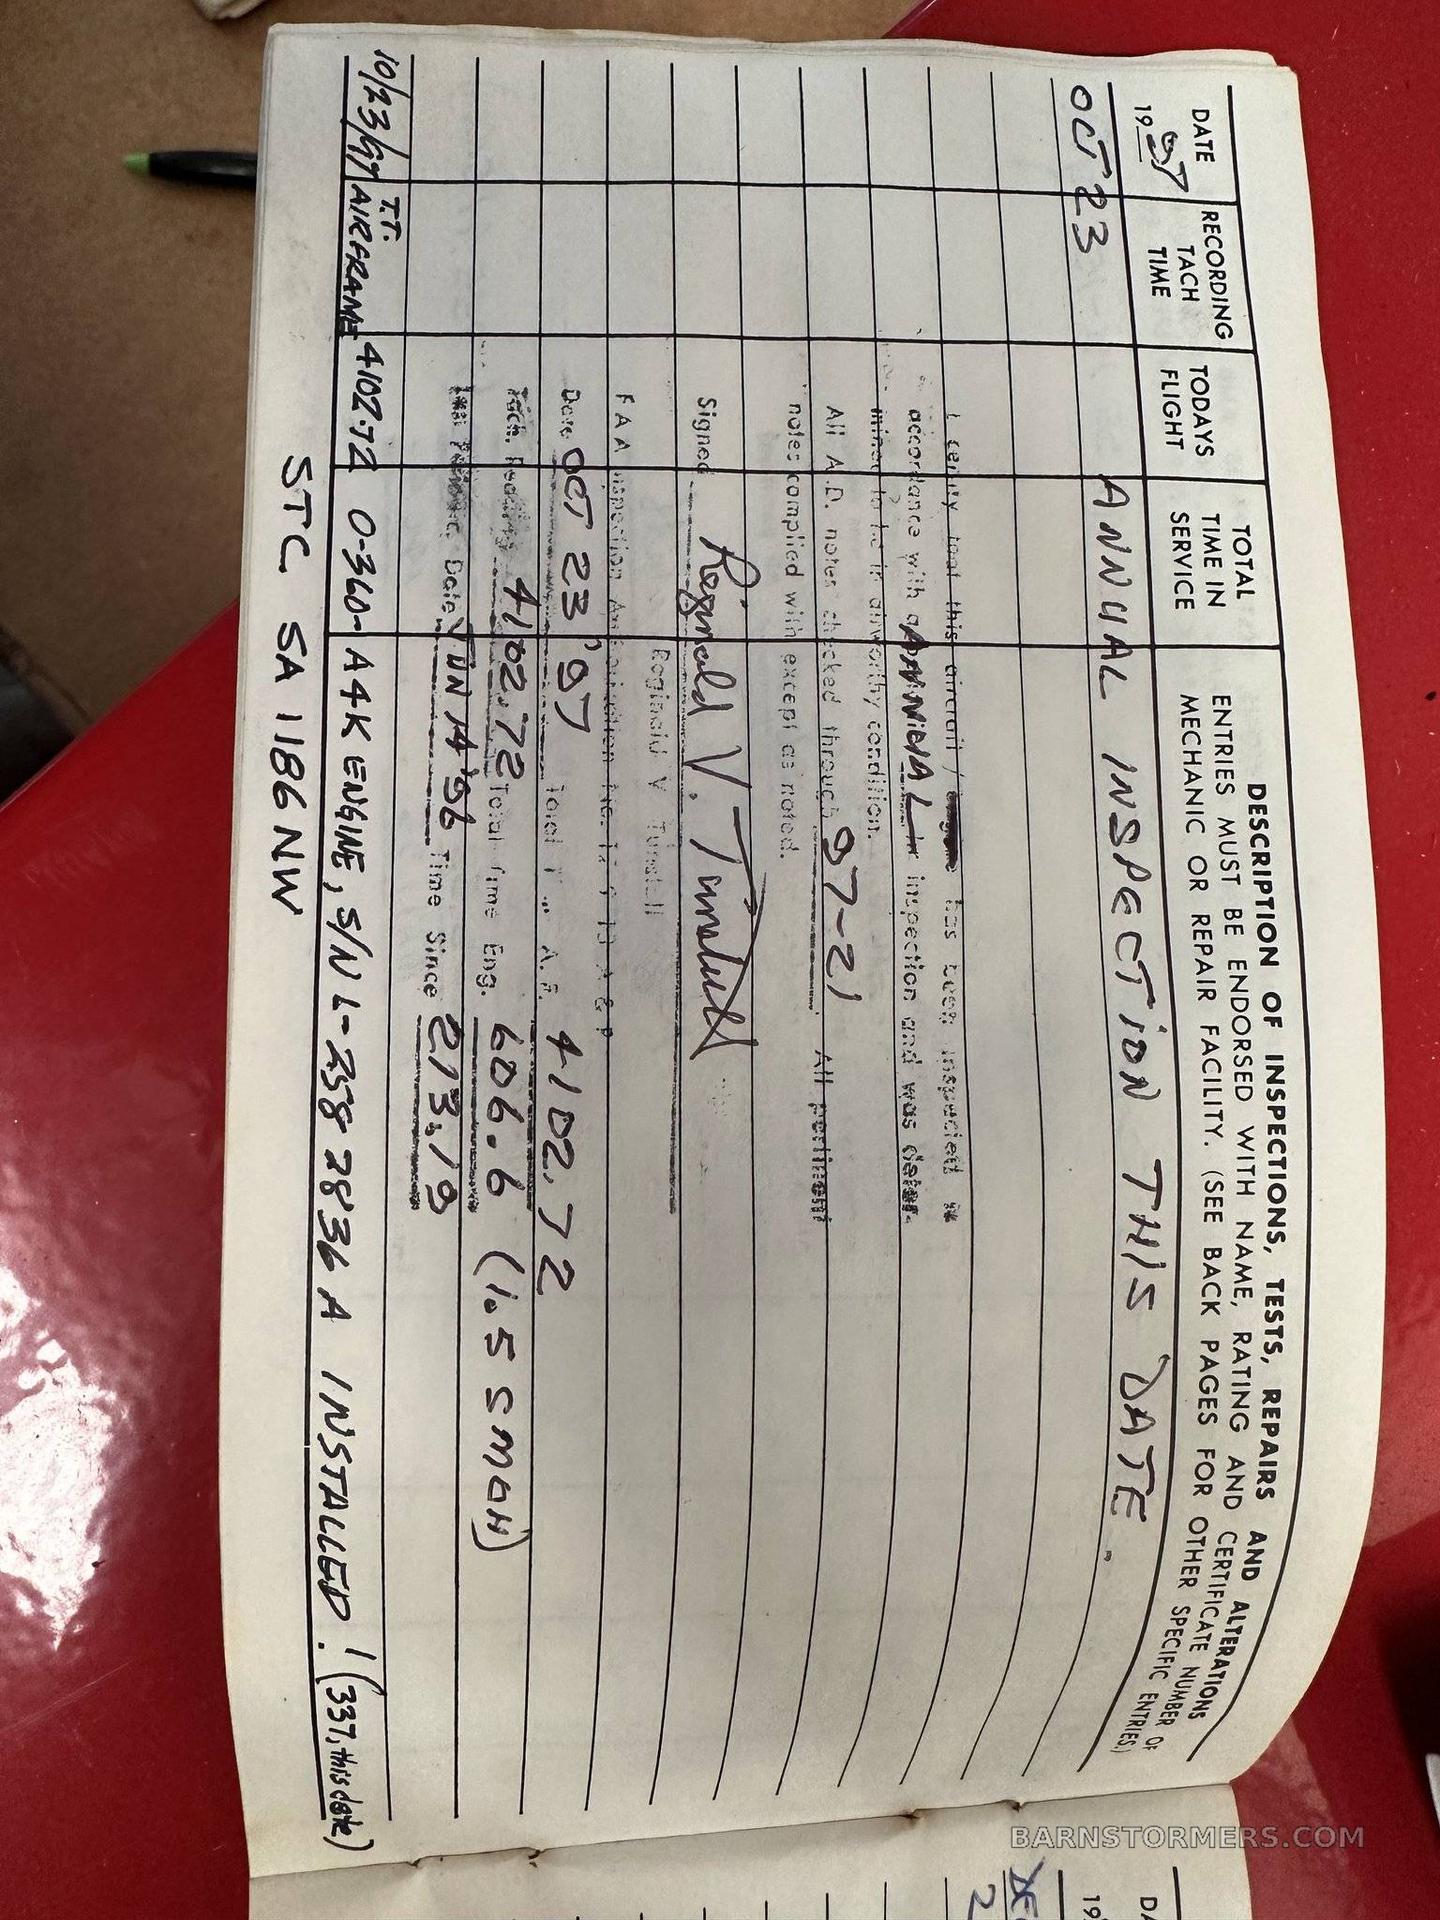 DATE
19 97
RECORDING
TACH
TIME
TODAYS
FLIGHT
TOTAL
TIME IN
SERVICE
DESCRIPTION OF INSPECTIONS, TESTS, REPAIRS AND ALTERATIONS
ENTRIES MUST BE ENDORSED WITH NAME, RATING AND CERTIFICATE NUMBER OF
MECHANIC OR REPAIR FACILITY. (SEE BACK PAGES FOR OTHER SPECIFIC ENTRIES.)
OCT 23 ANNUAL INSPECTION THIS DATE.
I certify that this aircraft / has been inspected in
accordance with ANNUAL inspection and was deter-
mined to be in airworthy condition.
All A.D. notes checked through 97-21 All pertinent
notes complied with except as noted.
Signed Reginald V. Tunstall
Reginald V Tunstall
FAA Inspection Authorization No. A & P
Date OCT 23 '97 Total A.F. 4102.72
Tach. Reading 4102.72 Total Time Eng. 606.6 (1.5 SMOH)
Date JUN 14 '96 Time Since 213.19
10/23/97 T.T. AIRFRAME 4102.72 O-360-A4K ENGINE, S/N L-25828 36 A INSTALLED! (337, this date)
STC SA 1186 NW
BARNSTORMERS.COM
DA
19
DE
2